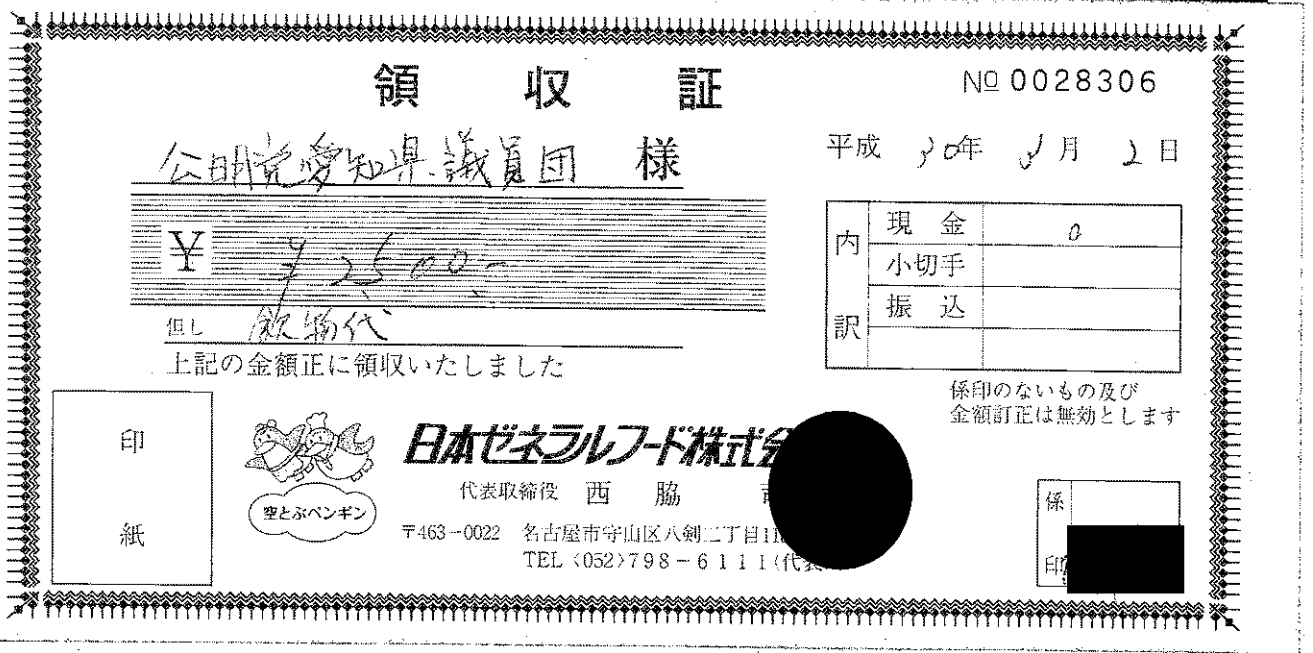 領収証
№ 0028306
公明党愛知県議員団 様
平成 30年 3月 2日
¥ ¥2,500.-
但し 飲物代
上記の金額正に領収いたしました
内訳
現金 0
小切手
振込
係印のないもの及び
金額訂正は無効とします
印紙
空とぶペンギン
日本ゼネラルフード株式会
代表取締役 西脇
〒463-0022 名古屋市守山区八剣二丁目11
TEL〈052〉798-6111(代表
係印